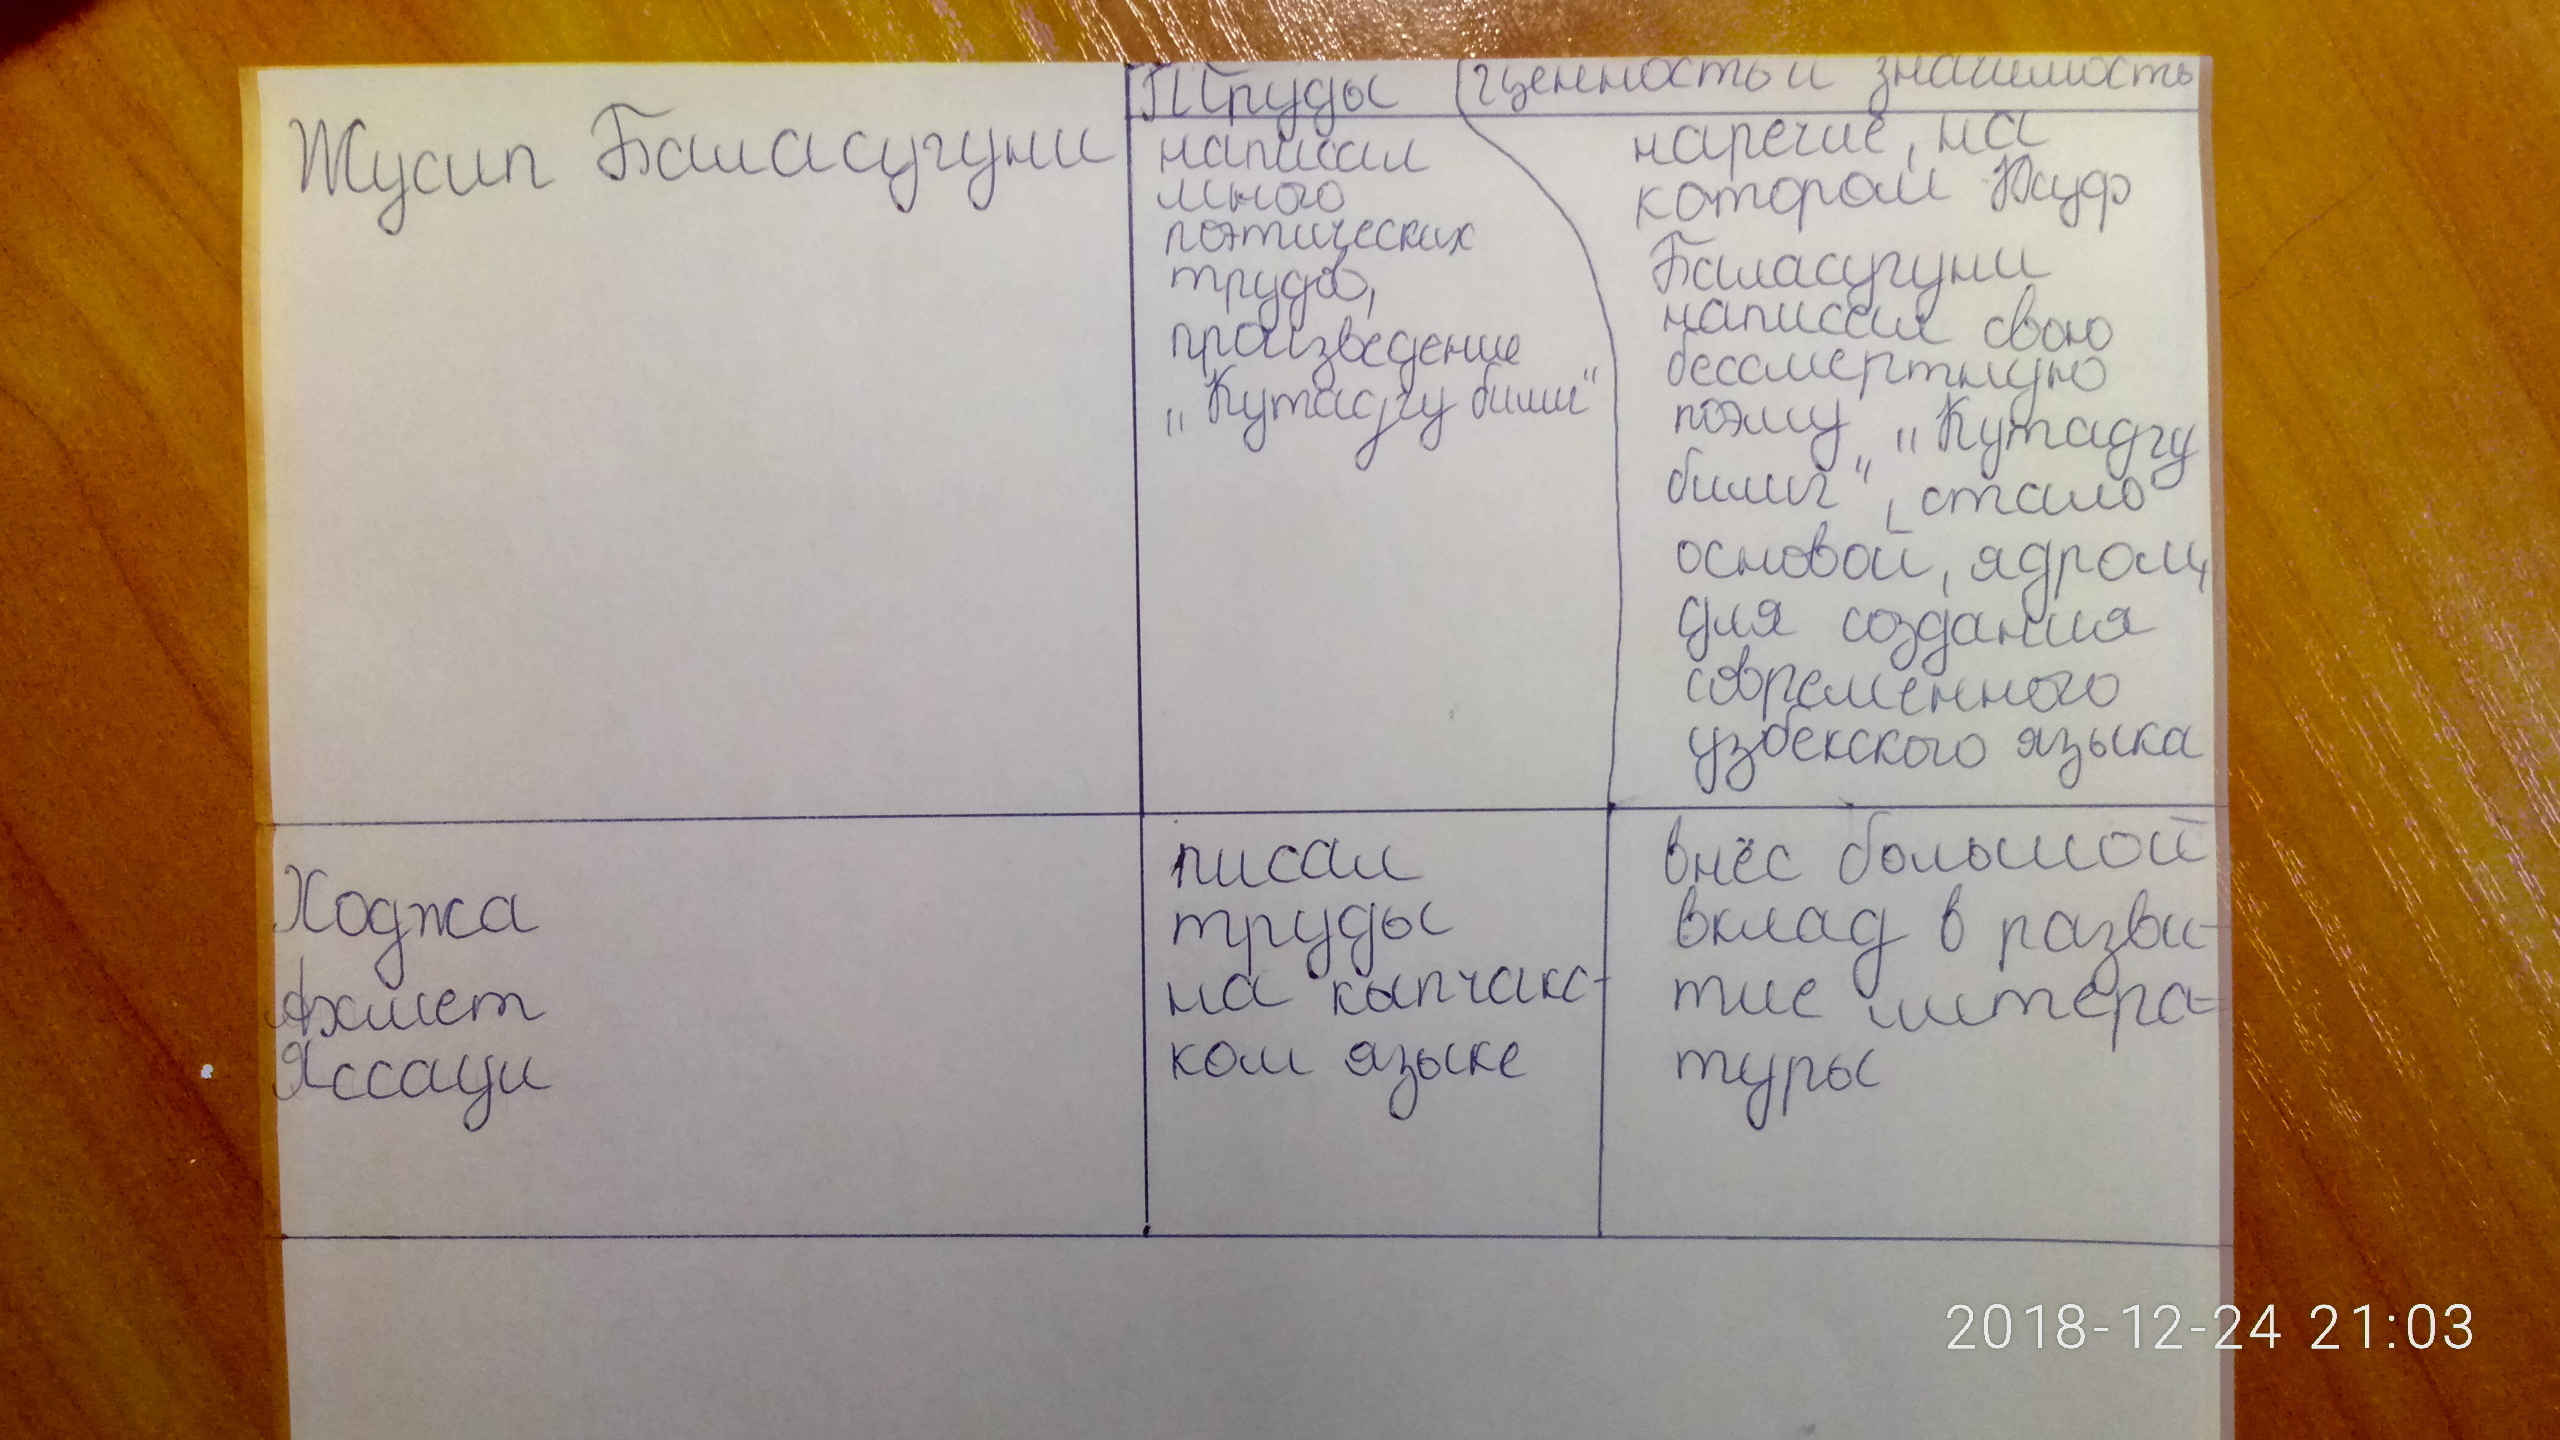 Труды ценность и значимость
Жусип Баласугуни
написал
много
поэтических
трудов,
произведение
„Кутадгу билиг“
наречие, на
котором Жусуф
Баласугуни
написал свою
бессмертную
поэму „Кутадгу
билиг“, стало
основой, ядром,
для создания
современного
узбекского языка
Ходжа
Ахмет
Яссауи
писал
труды
на кыпчакс-
ком языке
внёс большой
вклад в разви-
тие литера-
туры
2018-12-24 21:03